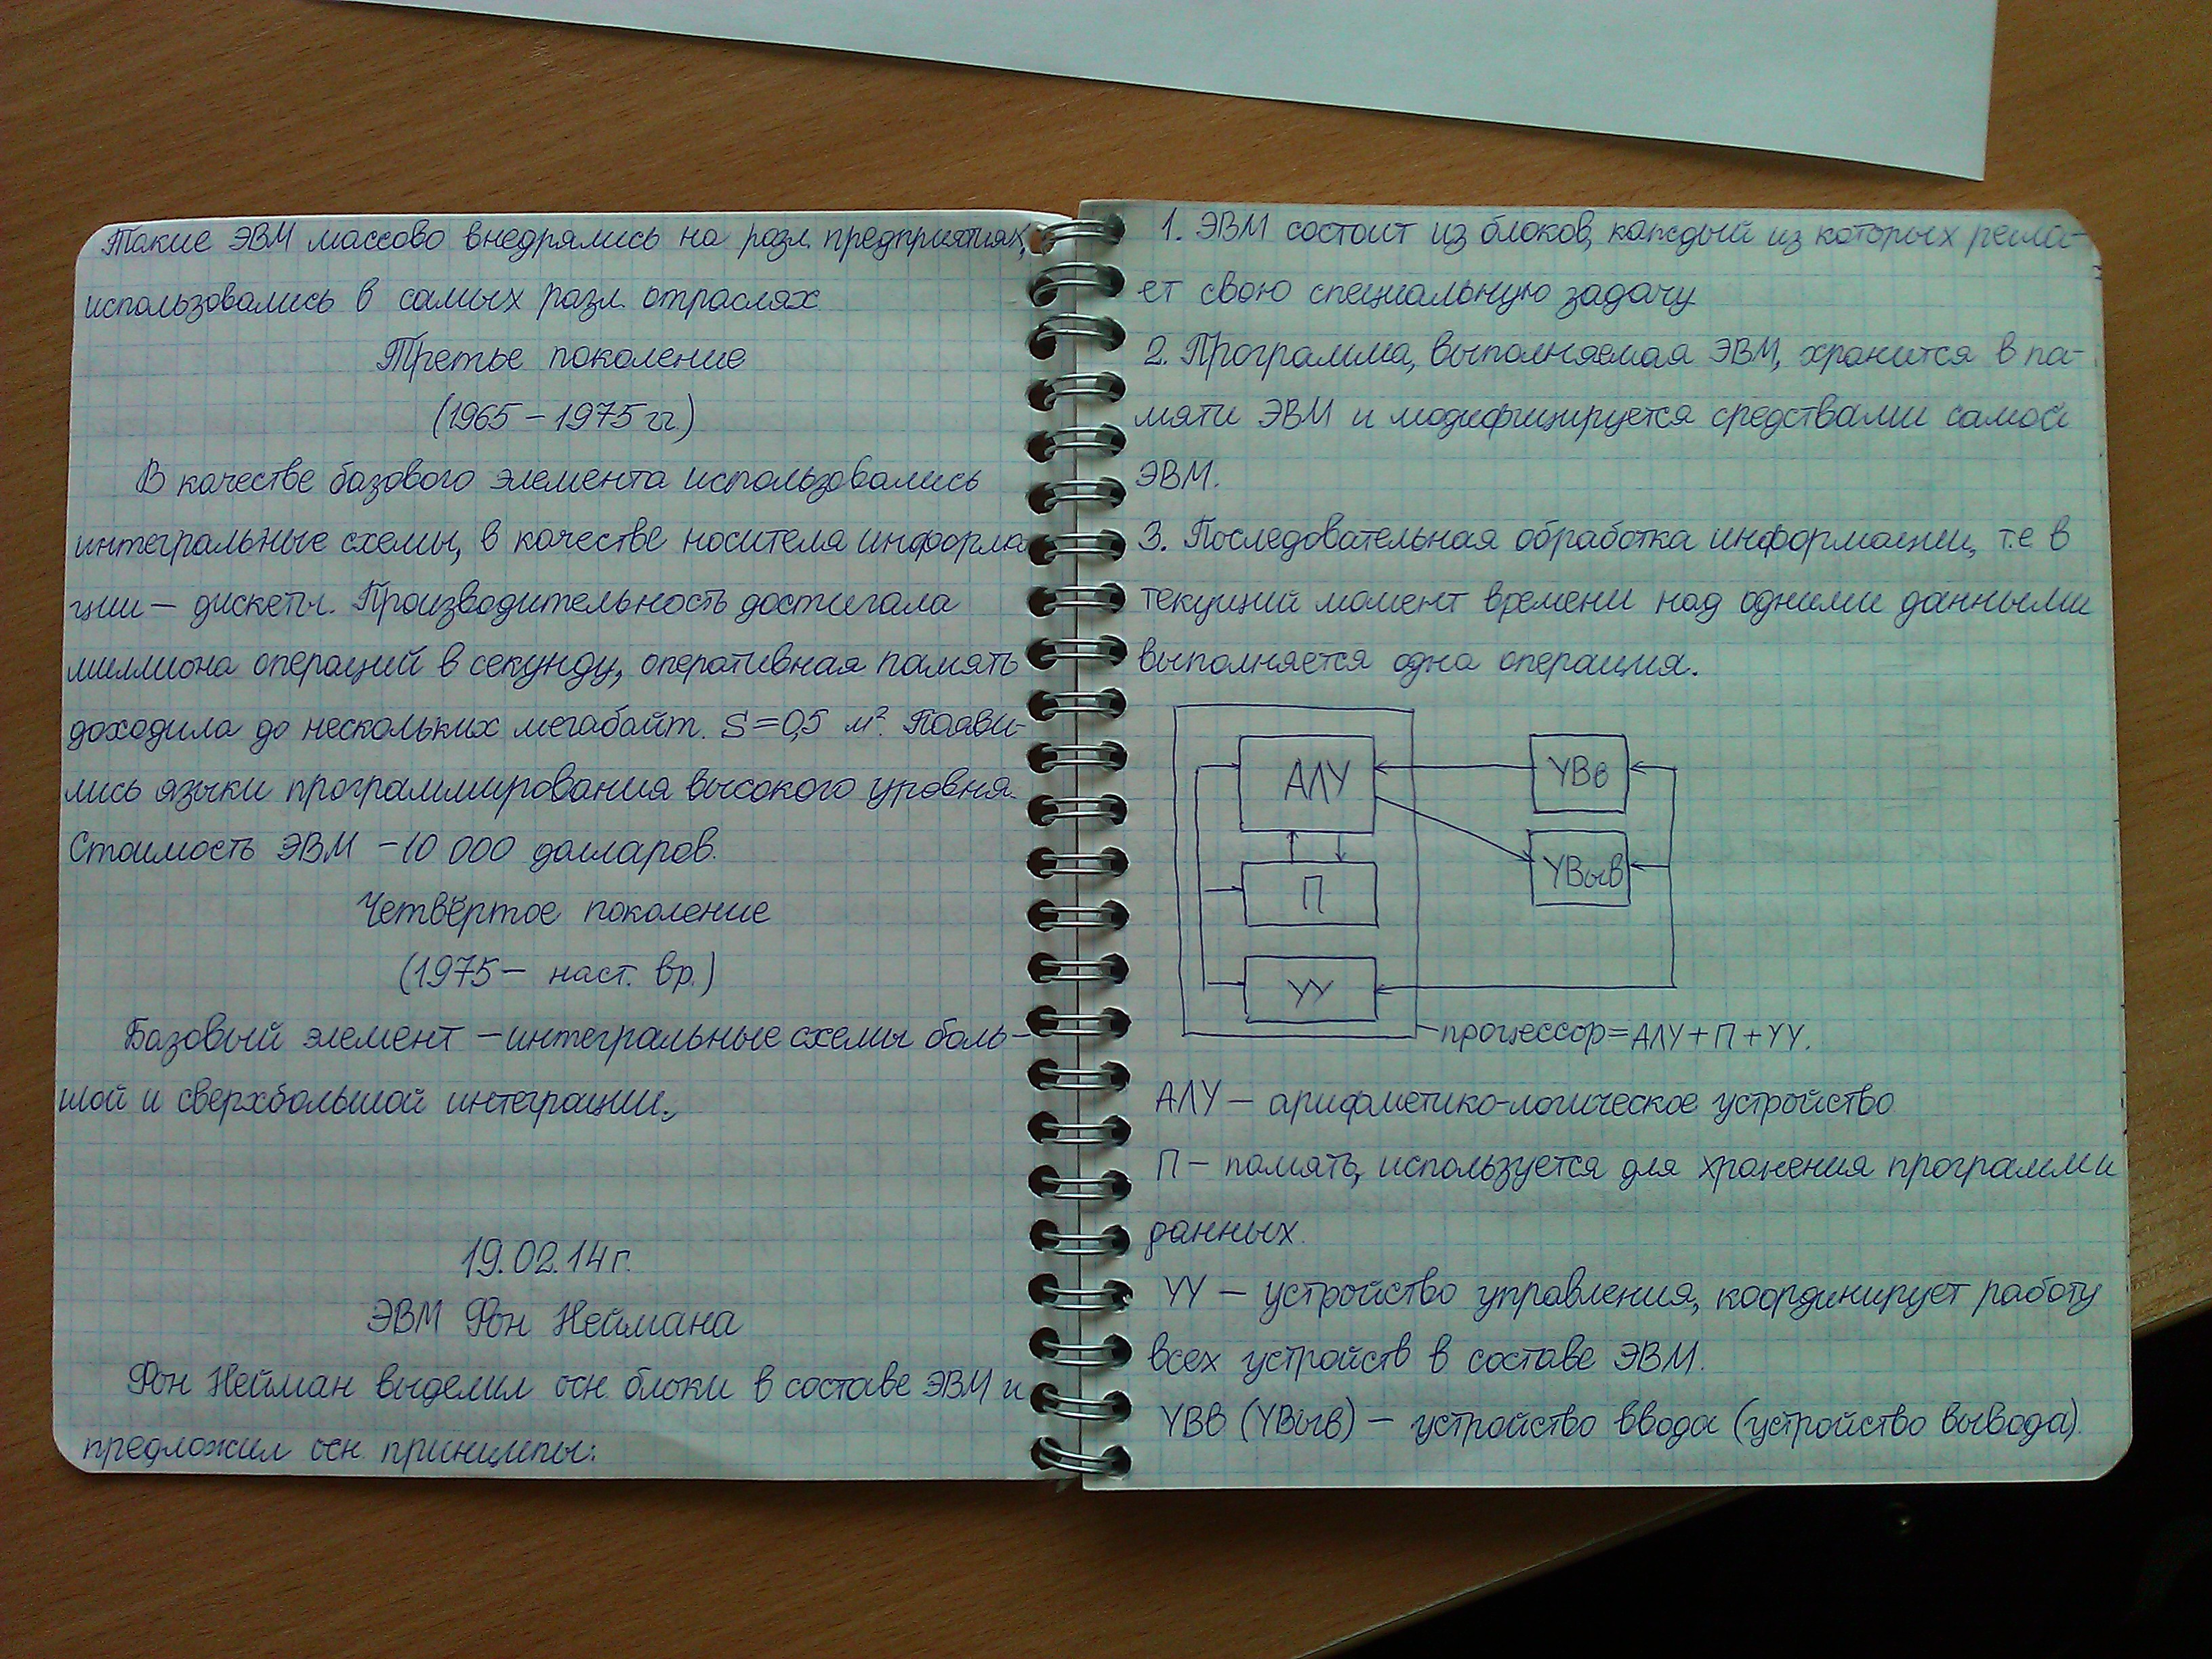 Такие ЭВМ массово внедрялись на разл. предприятиях,
использовались в самых разл. отраслях
Третье поколение
(1965 – 1975 гг.)
В качестве базового элемента использовались
интегральные схемы, в качестве носителя информа
ции – дискеты. Производительность достигала
миллиона операций в секунду, оперативная память
доходила до нескольких мегабайт. S=0,5 м². Появи-
лись языки программирования высокого уровня.
Стоимость ЭВМ – 10 000 долларов.
Четвёртое поколение
(1975 – наст. вр.)
Базовый элемент – интегральные схемы боль-
шой и сверхбольшой интеграции.
19.02.14 г.
ЭВМ Фон Неймана
Фон Нейман выделил осн. блоки в составе ЭВМ и
предложил осн. принципы:
1. ЭВМ состоит из блоков, каждый из которых реша-
ет свою специальную задачу
2. Программа, выполняемая ЭВМ, хранится в па-
мяти ЭВМ и модифицируется средствами самой
ЭВМ.
3. Последовательная обработка информации, т.е. в
текущий момент времени над одними данными
выполняется одна операция.
АЛУ
УВв
УВыв
П
УУ
процессор=АЛУ+П+УУ.
АЛУ – арифметико-логическое устройство
П – память, используется для хранения программ и
данных.
УУ – устройство управления, координирует работу
всех устройств в составе ЭВМ.
УВв (УВыв) – устройство ввода (устройство вывода).